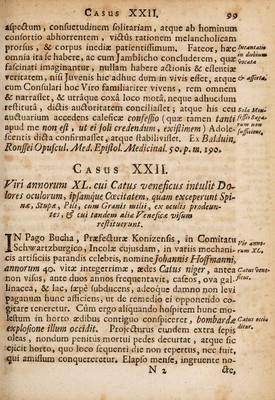 Casus XXII. 99
aspectum, consuetudinem solitariam, atque ab hominum
consortio abhorrentem, victûs rationem melancholicam
prorsus, & corpus inediæ patientissimum. Fateor, hæc
omnia ita se habere, ac cum Jamblicho concluderem, quæ
fascinati imaginantur, nullam habere actionis & essentiæ
veritatem, nisi Juvenis hic adhuc dum in vivis esset, atque
cum Consulari hoc Viro familiariter vivens, rem omnem
& narrasset, & urtráque coxâ loco motâ, neque adhucdum
restitutâ, dictis auctoritatem conciliasset; atque his ceu
auctuarium accedens calefice confessio (quæ tamen tanti
apud me non est, ut ei soli credendum, existimem) Adole-
scentis dicta confirmasset, atque stabilivisset. Ex Balduin.
Ronssei Opuscul. Med. Epistol. Medicinal. 50. p. m. 190.
Incantatio
in dubium
vocata
& asserta.
Sola
non
sufficiens.
Casus XXII.
Viri annorum XL. cui Catus veneficus intulit Do-
lores oculorum, ipsamque Cœcitatem, quam exceperunt Spi-
næ, Stupa, Pili, cum Granis milii, ex oculis prodeun-
tes, & cui tandem aliæ Veneficæ visum
restituerunt.
IN Pago Bucha, Præfecturæ Konizensis, in Comitatu
Schwartzburgico, Incolæ cujusdam, in variis mechani-
cis artificiis parandis celebris, nomine Johannis Hoffmanni,
annorum 40. vitæ integerrimæ, ædes Catus niger, antea
non visus, ante duos annos frequentavit, caseos, ova gal-
linacea, & lac, sæpè subducens, adeoque damno non levi
paganum hunc afficiens, ut de remedio ei opponendo co-
gitare teneretur. Cùm ergo aliquando hospitem hunc mo-
lestum in horto ædibus contiguo conspiceret, bombardæ
explosione illum occidit. Projecturus eundem extra sepis
oleas, nondum penitus mortui pedes decurtat, atque sic
ejicit horto, quo loco sequenti die non repertus, nec fuit,
qui amissum conquereretur. Elapso mense, ingruente no-
Vir anno-
rum XL.
Catus Vene-
ficus.
Catus occi-
ditur.
N 2 &c,